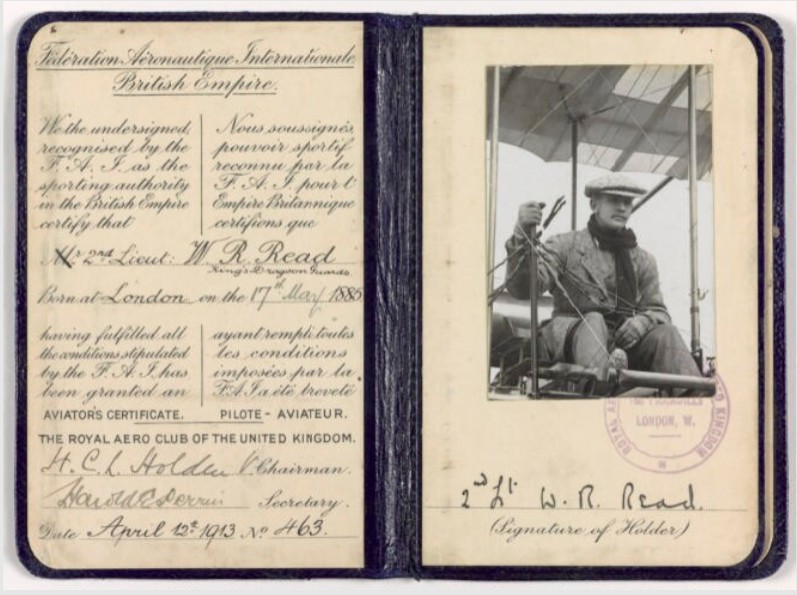 Fédération Aéronautique Internationale
British Empire.
We the undersigned,
recognised by the
F. A. I. as the
sporting authority
in the British Empire
certify that
Nous soussignés
pouvoir sportif
reconnu par la
F. A. I. pour l'
Empire Britannique
certifions que
Mr 2nd Lieut: W. R. Read
King's Dragoon Guards.
Born at London on the 17th May 1885
having fulfilled all
the conditions stipulated
by the F. A. I. has
been granted an
ayant rempli toutes
les conditions
imposées par la
F.A.I a été breveté
AVIATOR'S CERTIFICATE. PILOTE - AVIATEUR.
THE ROYAL AERO CLUB OF THE UNITED KINGDOM.
H. C. L. Holden V Chairman.
Harold E Perrin Secretary.
Date April 12th 1913 No 463.
PICCADILLY
LONDON, W.
ROYAL AE
KINGDOM
2nd Lt W. R. Read.
(Signature of Holder)